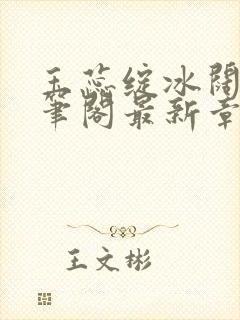 玉蕊绽冰阔
笔阁最新章
王文彬